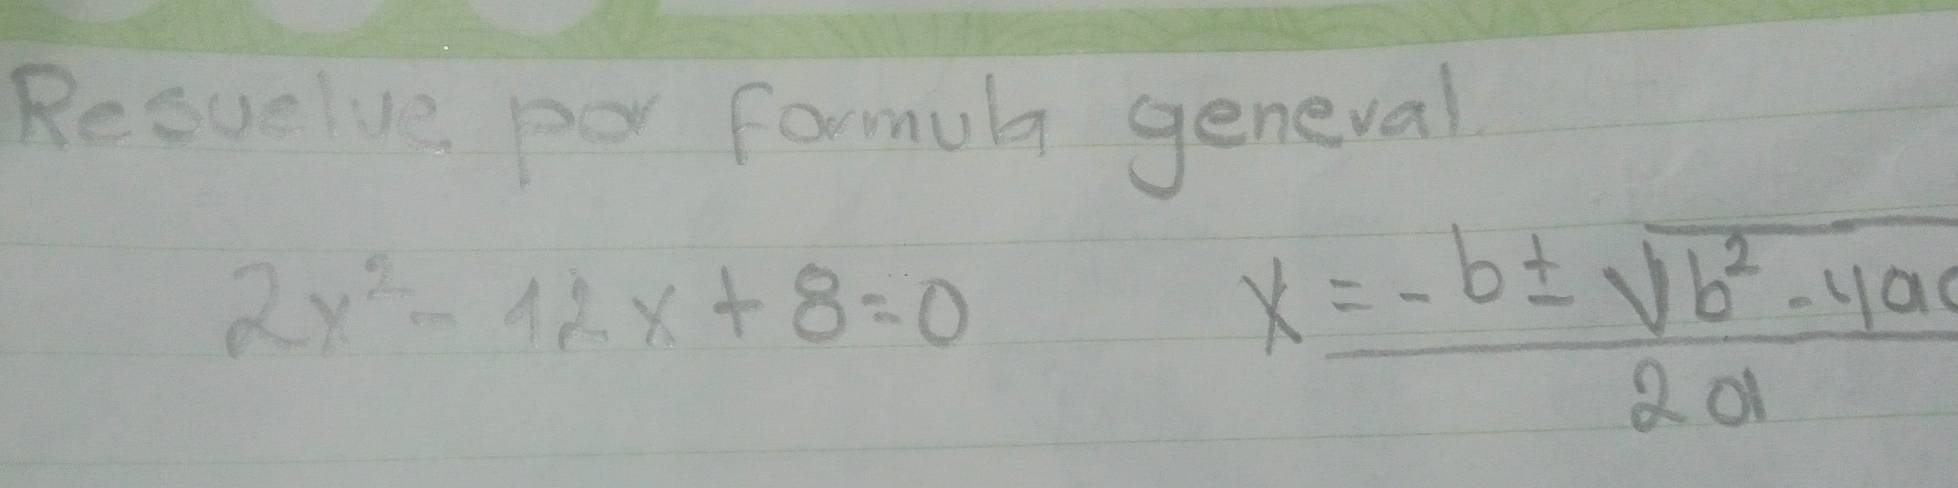 Resuelve por formula general
2x² - 12x + 8 = 0    x = -b ± √b² - 4ac / 2a